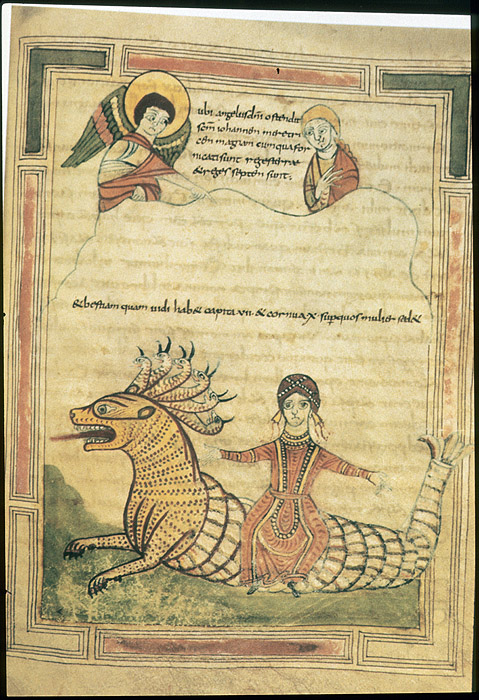 ubi angelus dn̄i ostendit
sc̄m iohannen meretri
cem magnam cum qua for
nicati sunt reges terrae
& reges septem sunt.
& bestiam quam uidi hab& capita uii. & cornua x. sup̄ quos mulier sed&